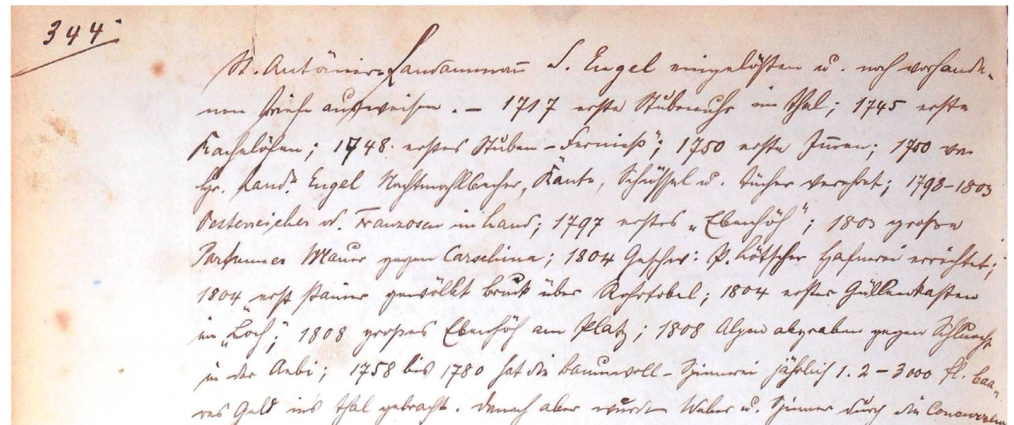 344.
St. Antönier-Landammann S. Engel eingelösten u. noch vorhande-
nen Briefe aufweisen. – 1717 erste Stubenuhr im Thal; 1745 erste
Kachelöfen; 1748 erstes Stuben-Ferniess"; 1750 erste ; 1750 von
Hr. Land. Engel Nachtmahlbecher, Kante, Schüssel u. Tücher verehrt; 1798-1803
Oestereicher u. Franzosen im Land; 1797 erstes „Ebenhöh"; 1803 grosse
Partnuner Mauer gegen Carschina; 1804 Geschw: P. Lötscher Hafnerei errichtet;
1804 erst stainer gewölbt Bruck über Rohrtobel; 1804 erster Güllenkasten
im „Loch"; 1808 grosses Ebenhöh am Platz; 1808 Alpen abgraben gegen Schlucht
in der Aebi; 1758 bis 1780 hat die Baumwoll-Spinnerei jährlich 1. 2-3000 fl. baa-
res Geld ins Thal gebracht. Danach aber wurden Weber u. Spinner durch die